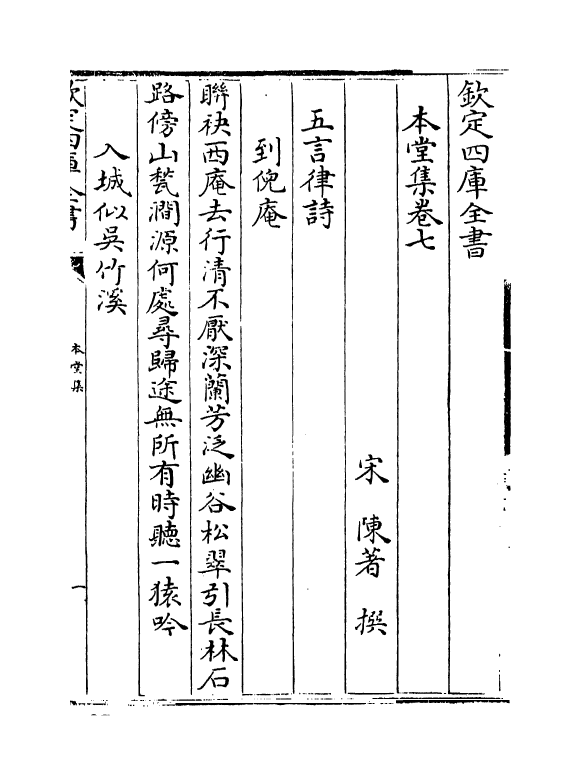 欽定四庫全書
本堂集卷七
宋 陳著 撰
五言律詩
到倪庵
聨袂西庵去行清不厭深蘭芳泛幽谷松翠引長林石
路傍山甃澗源何處尋歸途無所有時聽一猿吟
入城似吳竹溪
欽定四庫全書
本堂集
一